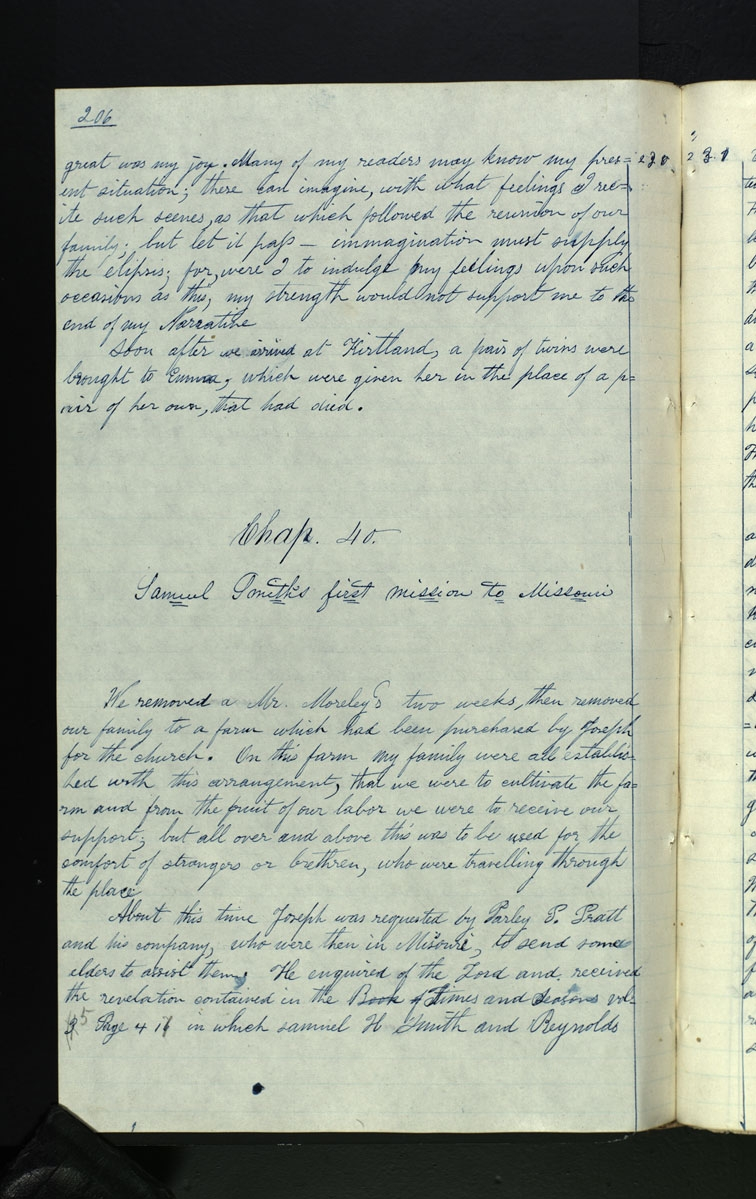 206
great was my joy. Many of my readers may know my pres=
ent situation; these can imagine, with what feelings I rec-
ite such scenes, as that which followed the reunion of our
family; but let it pass — immagination must supply
the elipsis; for, were I to indulge my feelings upon such
occasions as this, my strength would not support me to the
end of my Narrative
Soon after we arrived at Kirtland, a pair of twins were
brought to Emma, which were given her in the place of a p=
air of her own, that had died.
230
231
Chap. 40.
Samuel Smith's first mission to Missouri
We removed a Mr. Moreley's two weeks, then removed
our family to a farm which had been purchased by Joseph
for the church. On this farm my family were all establis-
hed with this arrangement, that we were to cultivate the fa=
rm and from the fruit of our labor we were to receive our
support; but all over and above this was to be used for the
comfort of strangers or brethren, who were travelling through
the place
About this time Joseph was requested by Parley P. Pratt
and his company, who were then in Misouri, to send some
elders to assist them. He enquired of the Lord and, received
the revelation contained in the Book of Times and Seasons vol-
5 Page 4 in which samuel H Smith and Reynolds